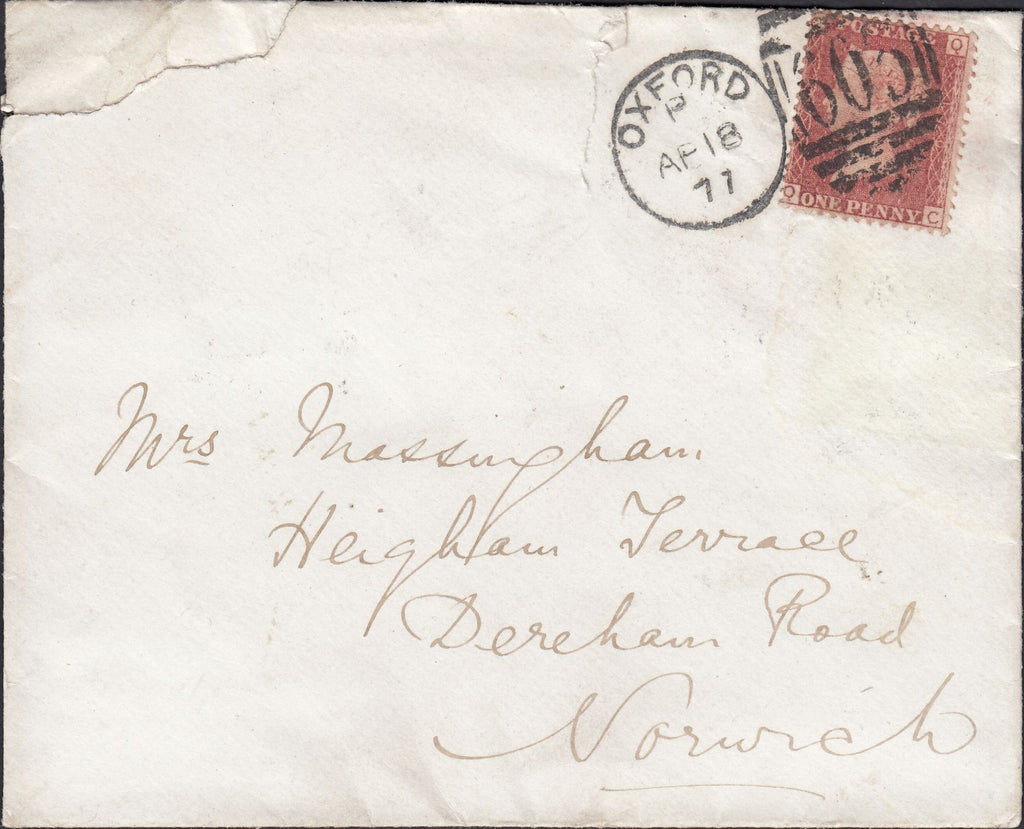 OXFORD
P
AP 18
77
605
POSTAGE
Q
Q
ONE PENNY
C
Mrs Massingham
Heigham Terrace
Dereham Road
Norwich